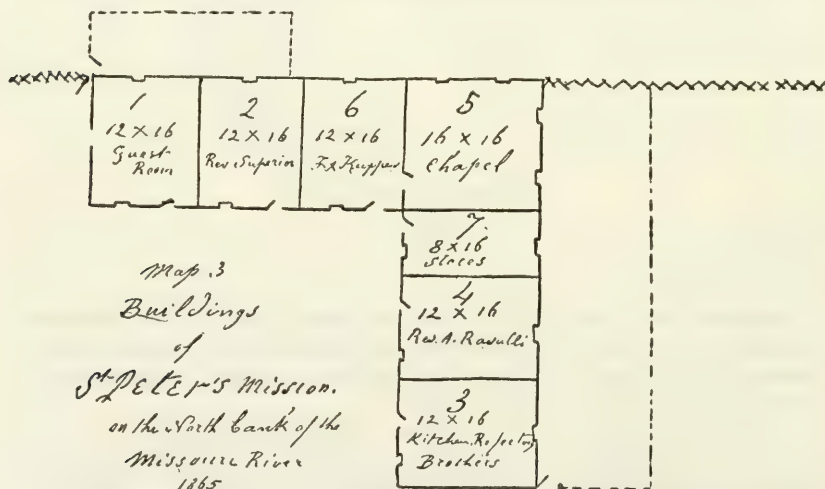 1
12 X 16
Guest
Room
2
12 X 16
Rev. Superior
6
12 X 16
5
16 X 16
Chapel
7.
8 X 16
4
12 X 16
Rev. A. Ravalli
3
12 X 16
Kitchen. Refectory
Brothers
Map. 3
Buildings
of
St PETEr's Mission.
on the North bank of the
Missouri River
1865